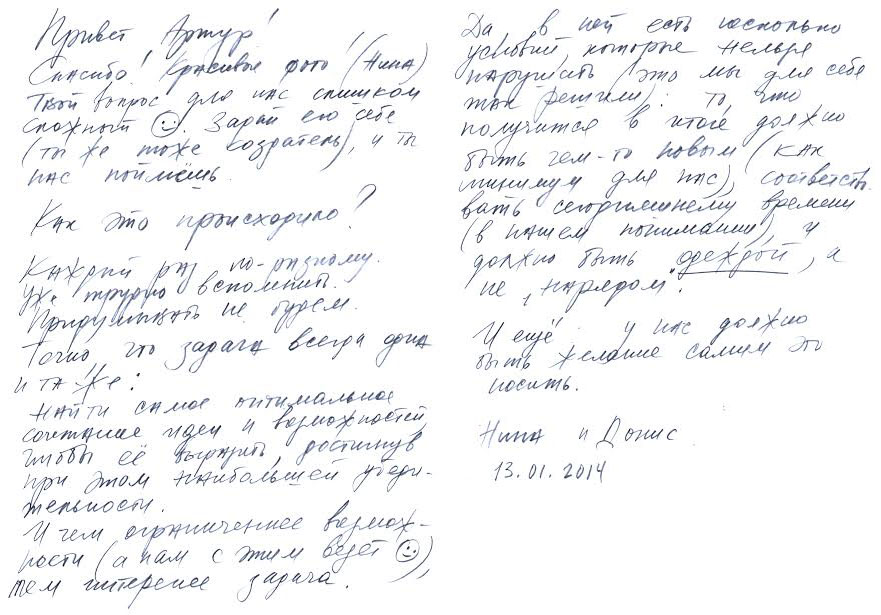 Привет Артур!
Спасибо! Красивые фото! (Нина)
Твой вопрос для нас слишком
сложный ☺. Задай его себе
(ты же тоже создатель), и ты
нас поймёшь.
Как это происходило?
Каждый раз по-разному.
Уже трудно вспомнить.
Придумывать не будем.
Точно, что задача всегда одна
и та же:
найти самое оптимальное
сочетание идеи и возможностей,
чтобы её выразить, достигнув
при этом наибольшей убеди-
тельности.
И чем ограниченнее возмож-
ности (а нам с этим везёт ☺),
тем интереснее задача.
Да в ней есть несколько
условий, которые нельзя
нарушать (это мы для себе
так решили): то, что
получится в итоге, должно
быть чем-то новым (как
минимум для нас), соответст-
вовать сегодняшнему времени
(в нашем понимании), и
должно быть одеждой, а
не „нарядом".
И ещё у нас должно
быть желание самим это
носить.
Нина и Донис
13.01.2014